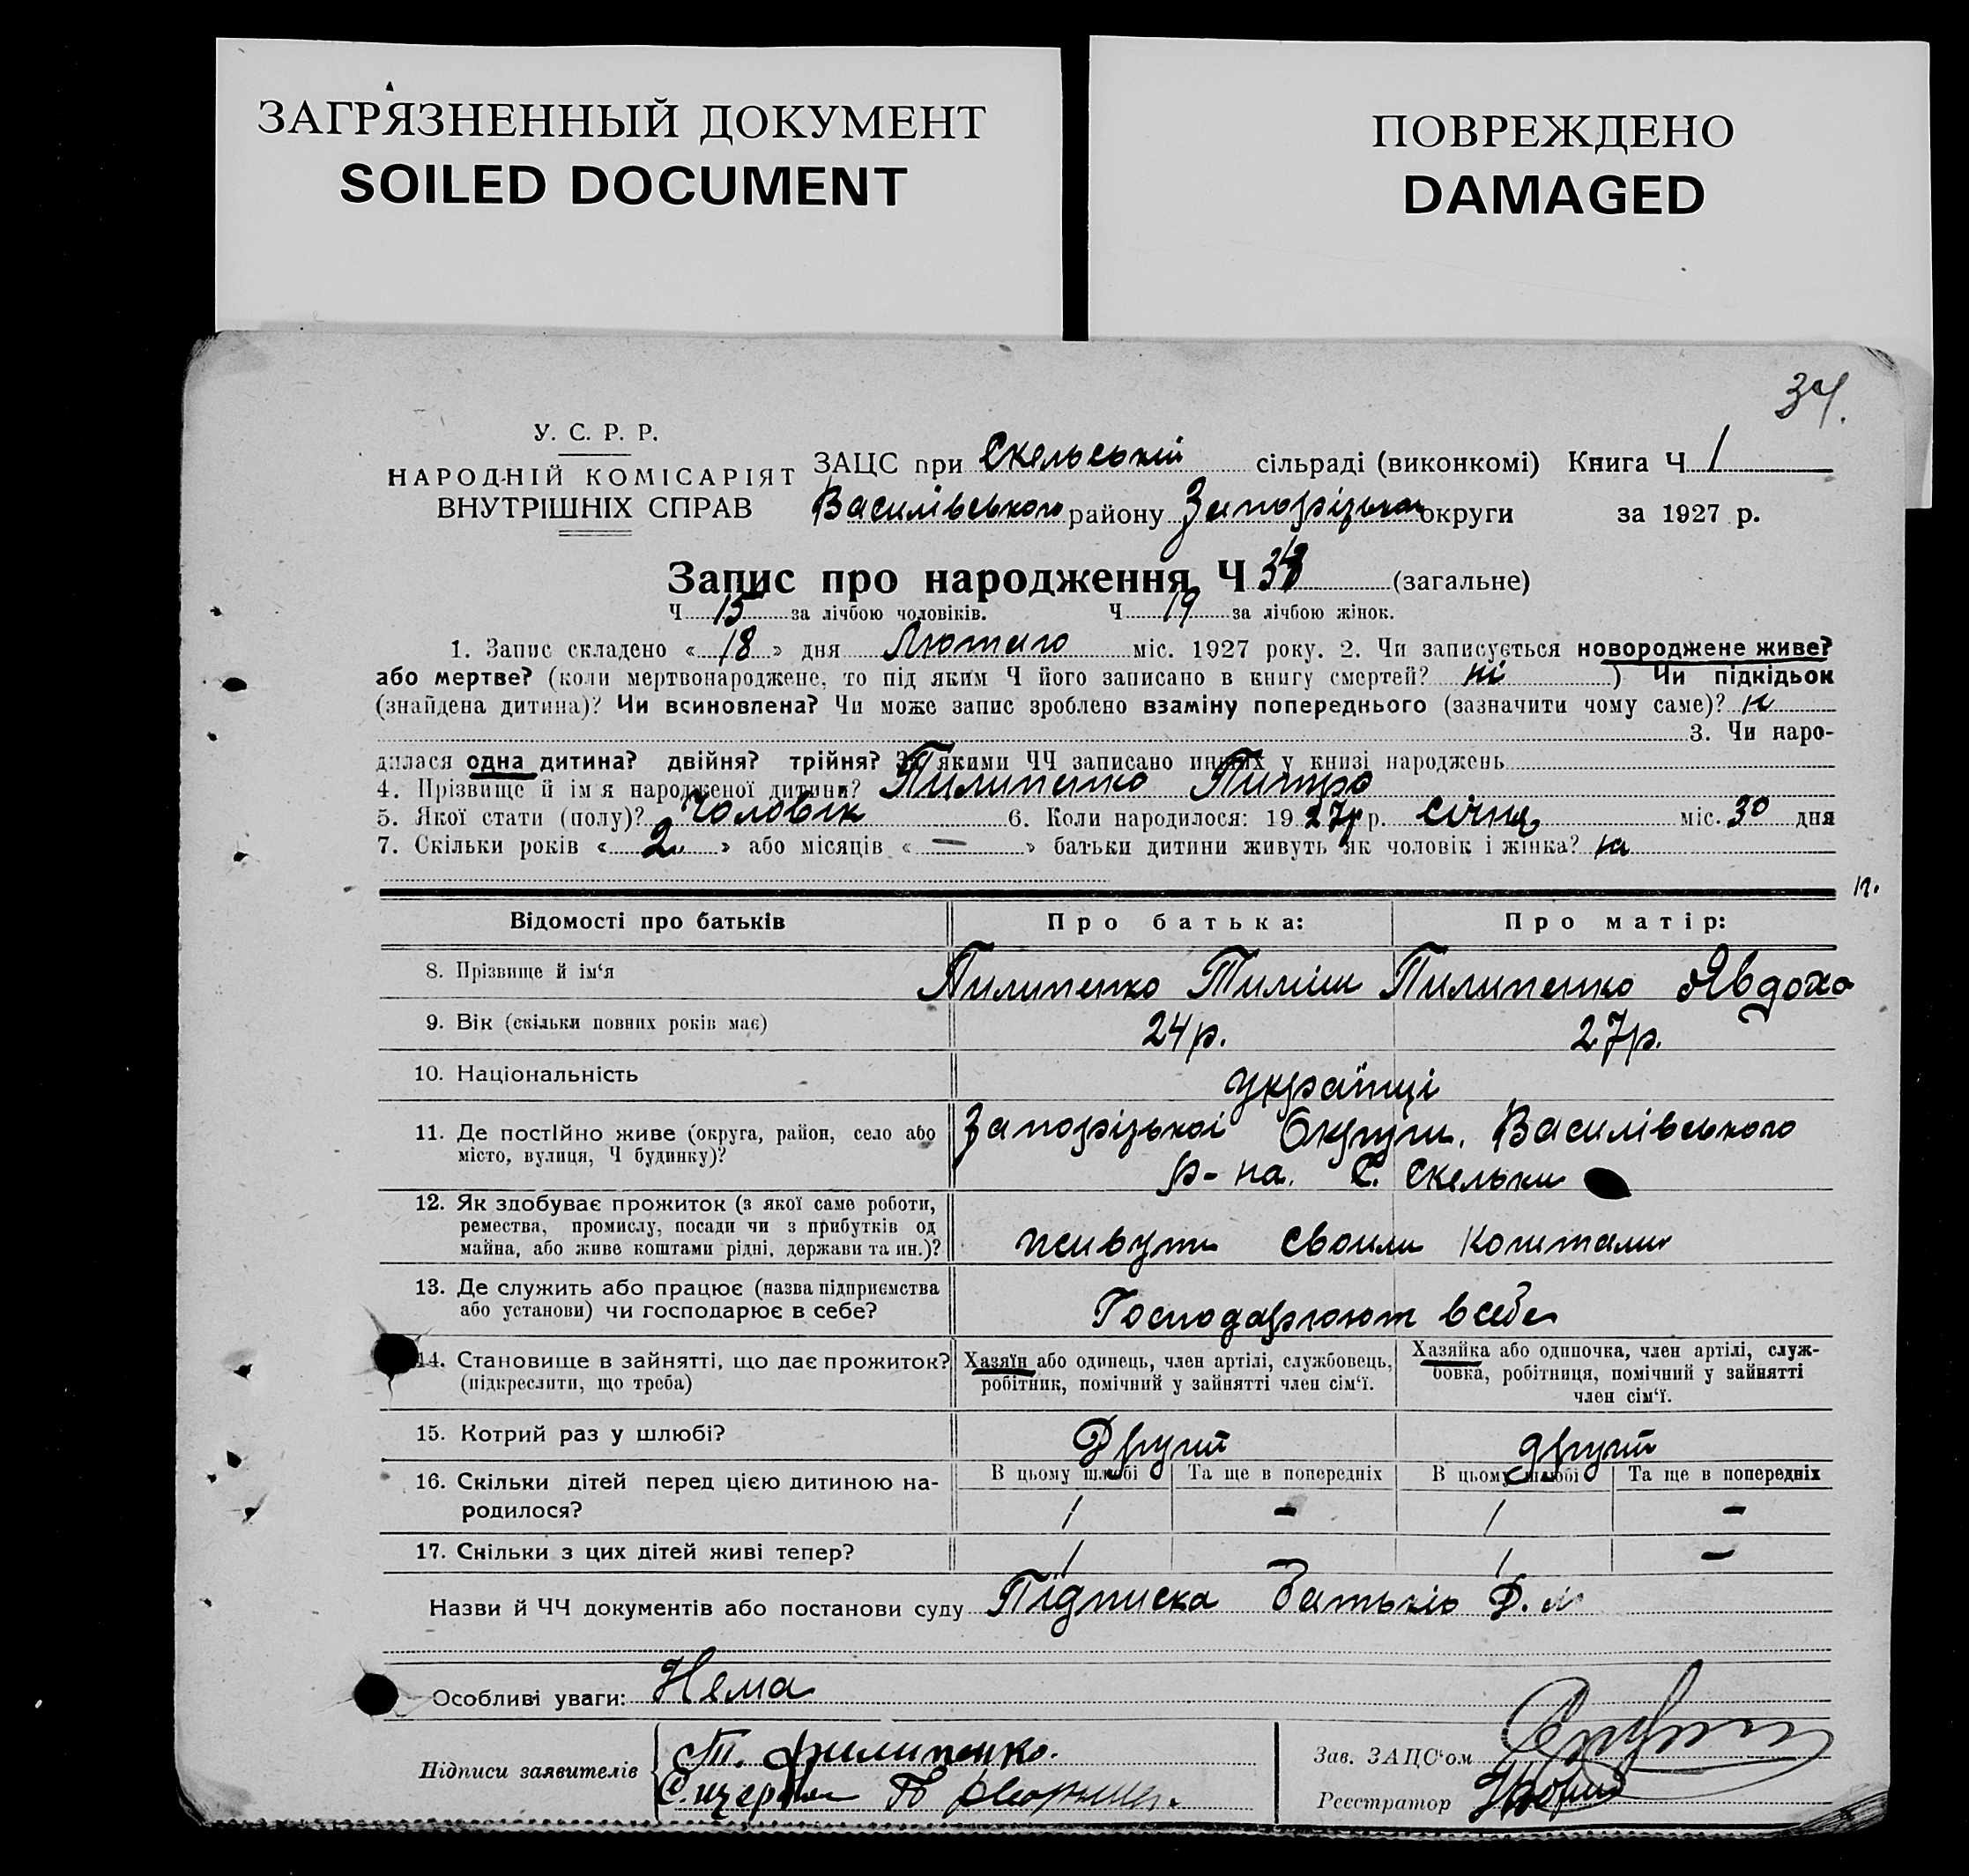 ЗАГРЯЗНЕННЫЙ ДОКУМЕНТ
SOILED DOCUMENT
ПОВРЕЖДЕНО
DAMAGED
34.
У. С. Р. Р.
НАРОДНІЙ КОМІСАРІЯТ
ВНУТРІШНІХ СПРАВ
ЗАЦС при Скельській сільраді (виконкомі) Книга Ч 1
Василівського району Запорізької округи за 1927 р.
Запис про народження Ч (загальне)
Ч 15 за лічбою чоловіків. Ч 19 за лічбою жінок.
1. Запис складено « 18 » дня Лютого міс. 1927 року. 2. Чи записується новороджене живе?
або мертве? (коли мертвонароджене, то під яким Ч його записано в книгу смертей? ні ) Чи підкідьок
(знайдена дитина)? Чи всиновлена? Чи може запис зроблено взаміну попереднього (зазначити чому саме)?
3. Чи наро-
дилася одна дитина? двійня? трійня? За якими ЧЧ записано инших у книзі народжень
4. Прізвище й ім'я народженої дитини? Пилипенко Питро
5. Якої стати (полу)? Чоловік 6. Коли народилося: 19 27р р. січня міс. 30 дня
7. Скільки років « 2 » або місяців « — » батьки дитини живуть як чоловік і жінка?
Відомості про батьків
Про батька:
Про матір:
8. Прізвище й ім'я
Пилипенко Тиміш
Пилипенко Явдоха
9. Вік (скільки повних років має)
24 р.
27 р.
10. Національність
українці
11. Де постійно живе (округа, район, село або
місто, вулиця, Ч будинку)?
Запорізької Округи. Василівського
р-на. С. Скельки
12. Як здобуває прожиток (з якої саме роботи,
ремества, промислу, посади чи з прибутків од
майна, або живе коштами рідні, держави та ин.)?
живуть своими коштами
13. Де служить або працює (назва підприємства
або установи) чи господарює в себе?
Господарюют в себе
14. Становище в зайнятті, що дає прожиток?
(підкреслити, що треба)
Хазяїн або одинець, член артілі, службовець,
робітник, помічний у зайнятті член сім'ї.
Хазяйка або одиночка, член артілі, служ-
бовка, робітниця, помічний у зайнятті
член сім'ї.
15. Котрий раз у шлюбі?
Другий
другий
16. Скільки дітей перед цією дитиною на-
родилося?
В цьому шлюбі
Та ще в попередніх
В цьому шлюбі
Та ще в попередніх
1 - 1 -
17. Скільки з цих дітей живі тепер?
1 1 -
Назви й ЧЧ документів або постанови суду Підписка батьків
Особливі уваги: Нема
Підписи заявителів
Т. Филипенко.
Зав. ЗАЦС'ом
Реєстратор